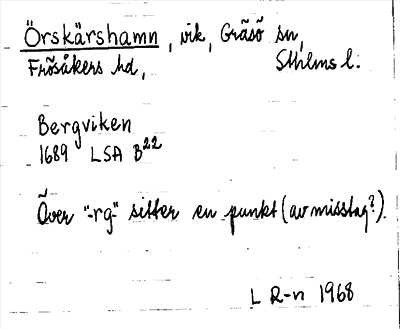 Örskärshamn, vik, Gräsö sn,
Frösåkers hd, Sthlms l.
Bergviken
1689 LSA B22
Över "-rg-" sitter en punkt (av misstag?).
L R-n 1968